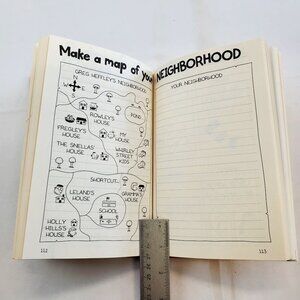 Make a map of your NEIGHBORHOOD
GREG HEFFLEY'S NEIGHBORHOOD
N
W E
S
POND
ROWLEY'S
HOUSE
FREGLEY'S
HOUSE
MY
HOUSE
THE SNELLAS'
HOUSE
WHIRLEY
STREET
KIDS
SHORTCUT
LELAND'S
HOUSE
GRAMMA'S
HOUSE
SCHOOL
HOLLY
HILLS'S
HOUSE
112
YOUR NEIGHBORHOOD
113